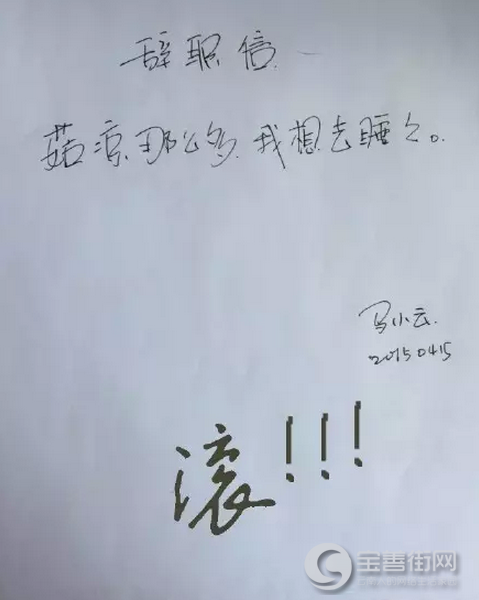 辞职信
菇凉那么多,我想去睡么。
马小云.
20150415
滚!!!
宝善街网